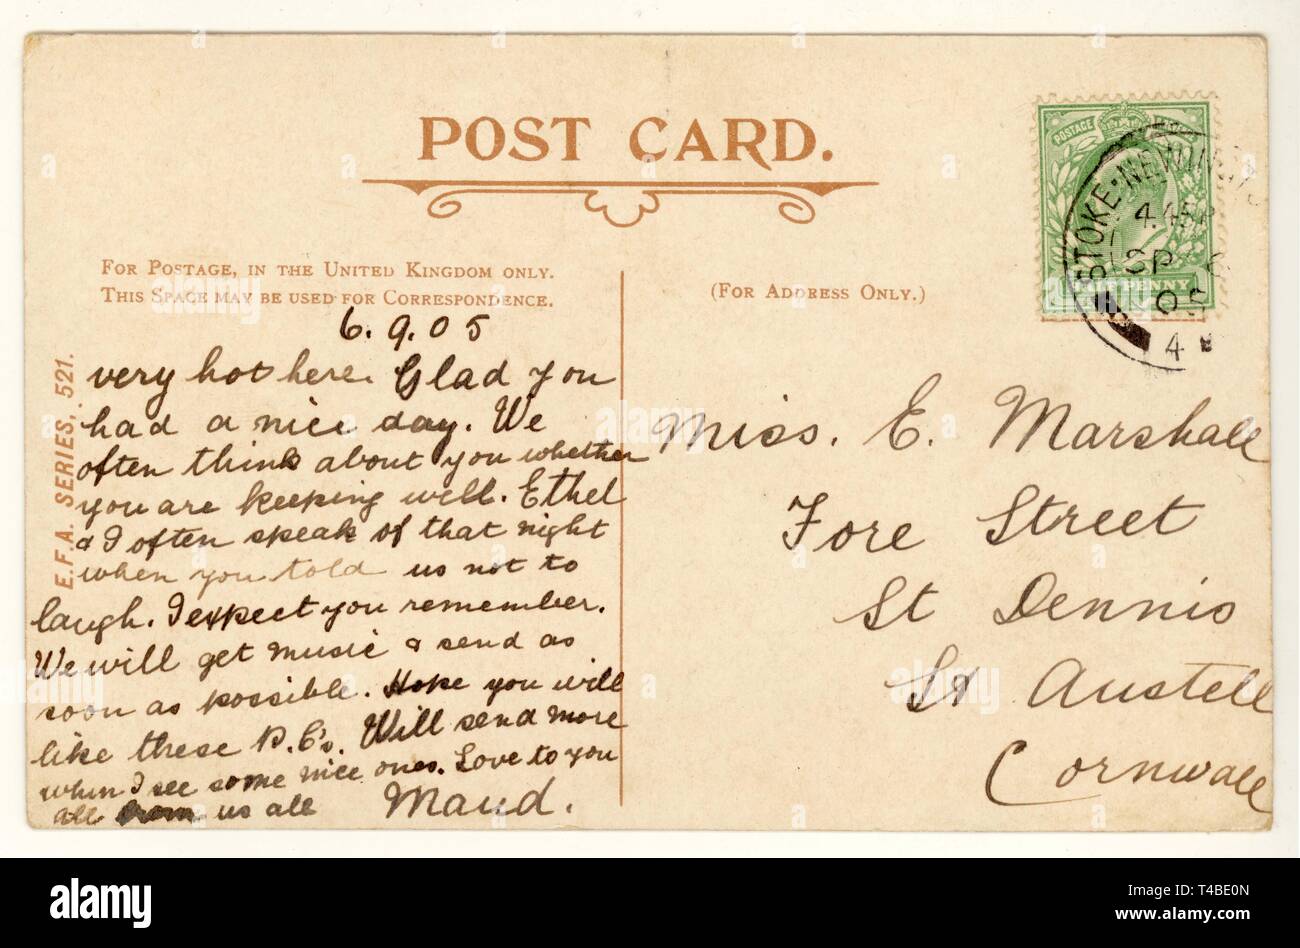 POST CARD.
FOR POSTAGE, IN THE UNITED KINGDOM ONLY.
THIS SPACE MAY BE USED FOR CORRESPONDENCE.
(FOR ADDRESS ONLY.)
E.F.A. SERIES, 521.
6.9.05
very hot here. Glad you
had a nice day. We
often think about you whether
you are keeping well. Ethel
& I often speak of that night
when you told us not to
laugh. I expect you remember.
We will get music & send as
soon as possible. Hope you will
like these P.C's. Will send more
when I see some nice ones. Love to you
all from us all Maud.
Miss. E. Marshall
Fore Street
St Dennis
St Austell
Cornwall
POSTAGE
PENNY
STOKE·NEWINGTON
4.45P
SP 6
05
4
alamy
Image ID: T4BE0N
www.alamy.com